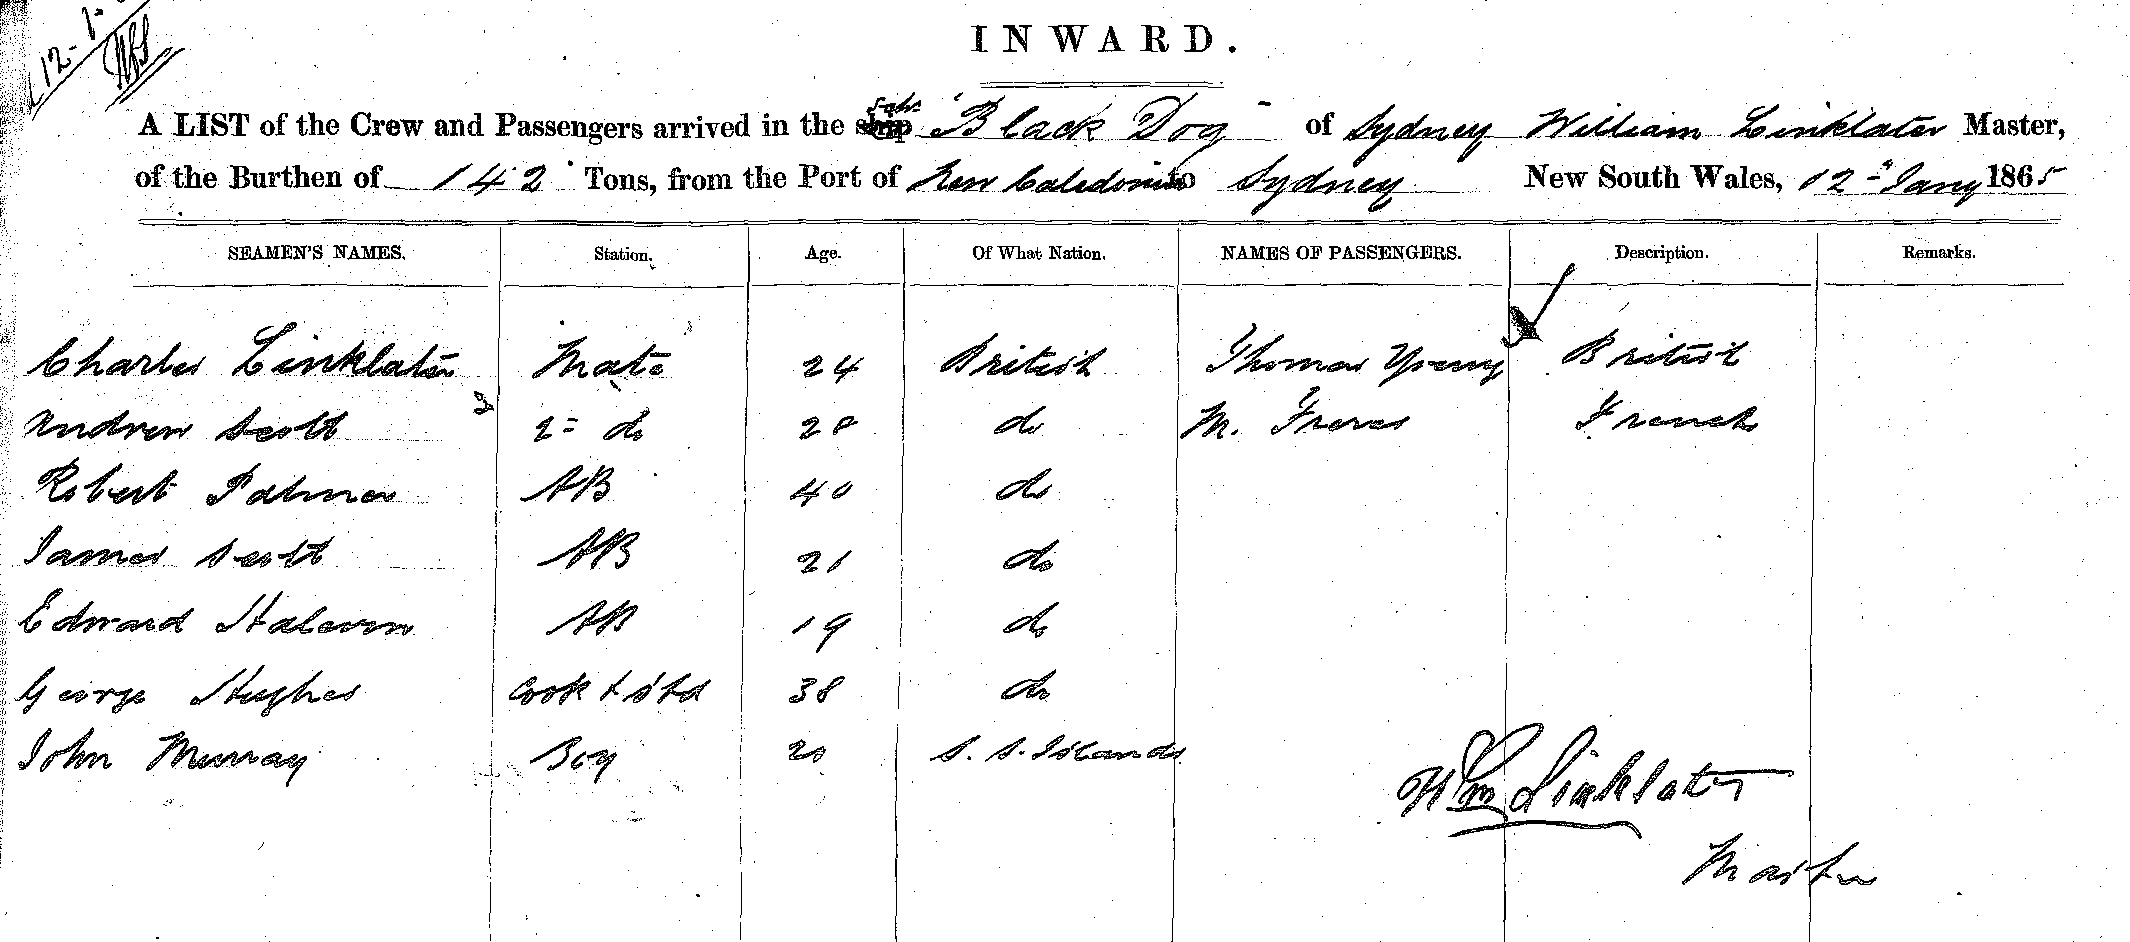 12-1-
INWARD.
A LIST of the Crew and Passengers arrived in the ship Schr. "Black Dog" of Sydney William Linklater Master,
of the Burthen of 142 Tons, from the Port of New Caledonia to Sydney New South Wales, 12th Jany 1865
SEAMEN'S NAMES. Station. Age. Of What Nation. NAMES OF PASSENGERS. Description. Remarks.
Charles Linklater Mate 24 British Thomas Young British
Andrew Scott 2= do 28 do M. Freres French
Robert Palmer AB 40 do
James Scott AB 21 do
Edward AB 19 do
George Hughes Cook & Std 38 do
John Murray Boy 20 S. S. Islands
Wm Linklater
Master